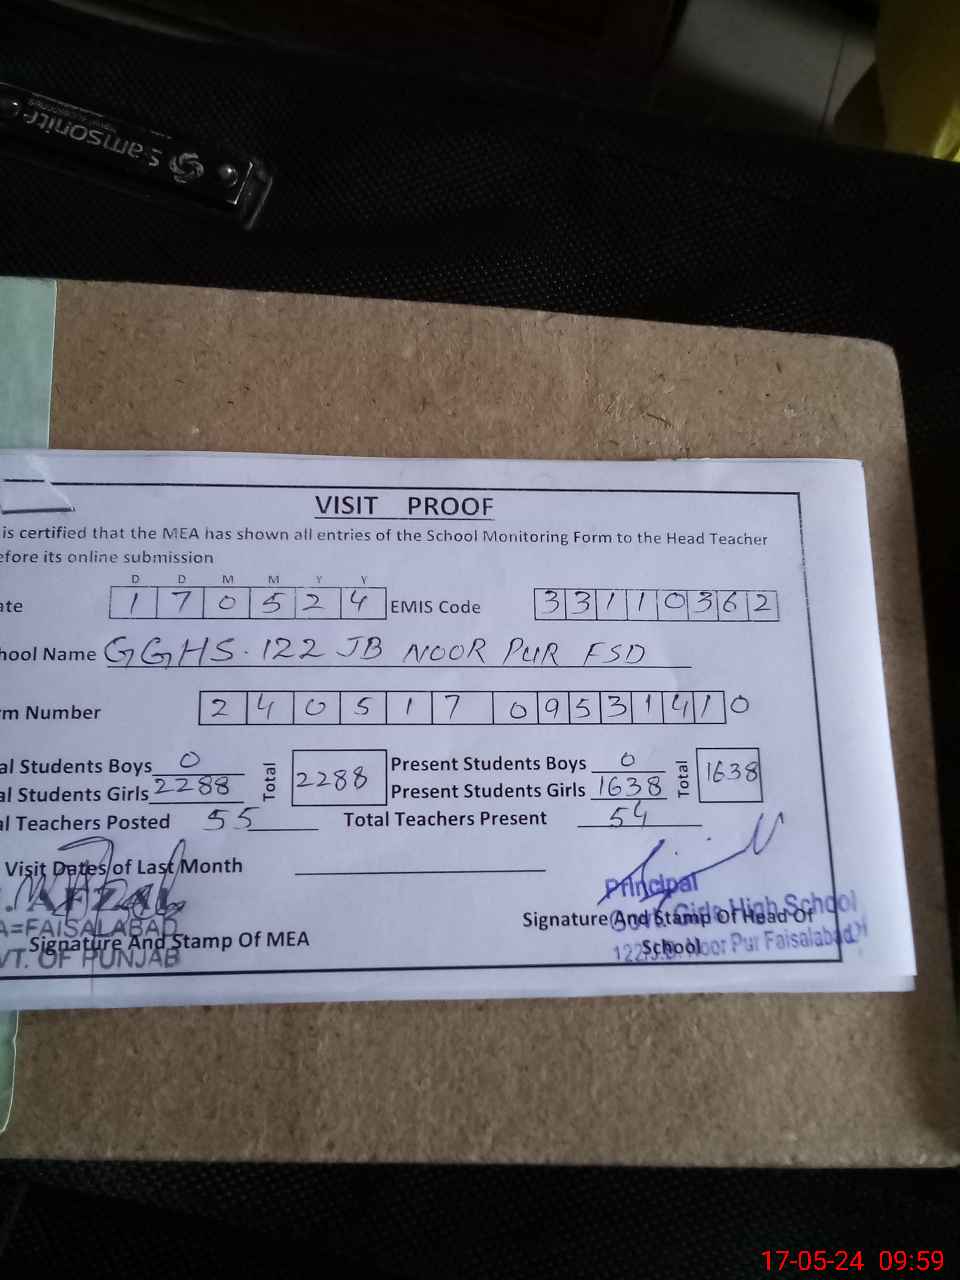 Samsonite
VISIT PROOF
is certified that the MEA has shown all entries of the School Monitoring Form to the Head Teacher
efore its online submission
D D M M Y Y
ate 1 7 0 5 2 4 EMIS Code 3 3 1 1 0 3 6 2
hool Name GGHS. 122 JB NOOR PUR FSD
rm Number 2 4 0 5 1 7 0 9 5 3 1 4 1 0
al Students Boys 0 Total 2288 Present Students Boys 0 Total 1638
al Students Girls 2288 Present Students Girls 1638
al Teachers Posted 55 Total Teachers Present 54
Visit Dates of Last Month
AFZAL
A=FAISALABAD
Signature And Stamp Of MEA
VT. OF PUNJAB
Principal
Signature And Stamp Of Head Of
School
Govt. Girls High School
122 J.B. Noor Pur Faisalabad
17-05-24 09:59